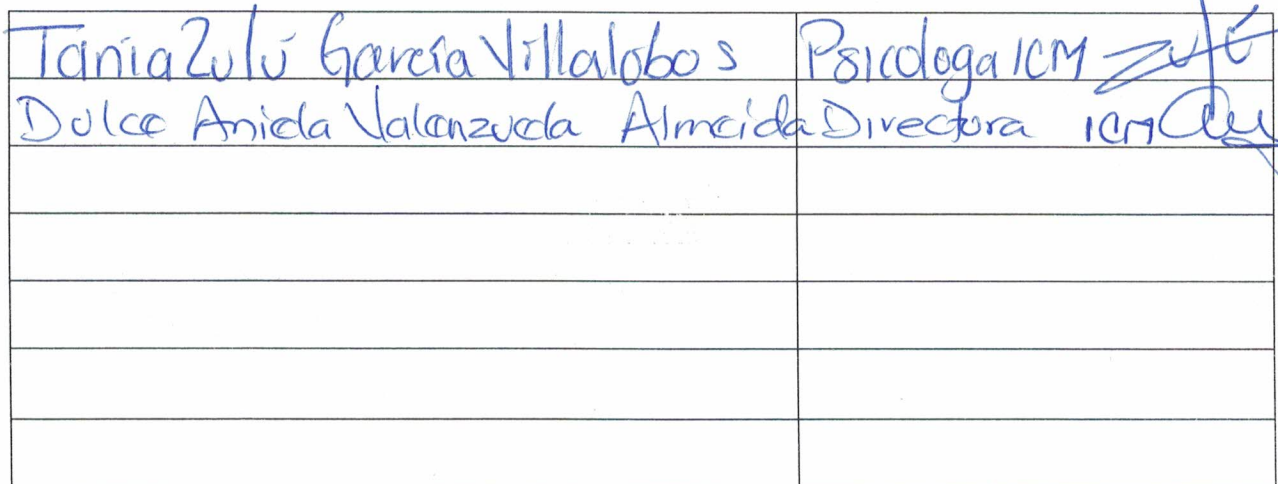 Tania Zulú García Villalobos Psicologa ICM
Dulce Aniela Valenzuela Almeida Directora ICM